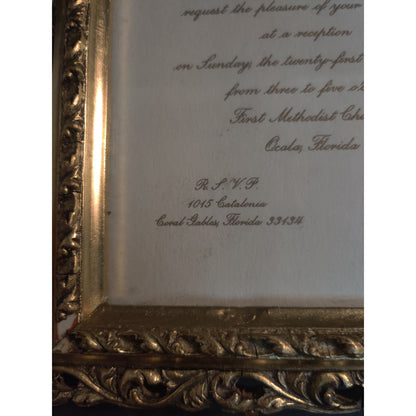 request the pleasure of your
at a reception
on Sunday, the twenty-first
from three to five
First Methodist
Ocala, Florida
R. S. V. P.
1015 Catalonia
Coral Gables, Florida 33134